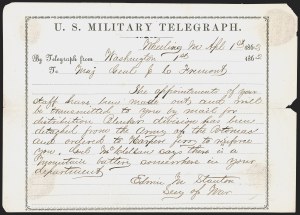 U. S. MILITARY TELEGRAPH.
Wheeling Apl 1st 1862
By Telegraph from Washington 1st 1862
To Maj Genl J. C. Fremont
The appointments of your
staff have been made out and will
be transmitted to you by mail for
distribution Blenkers division has been
detached from the Army of the Potomac
and ordered to Harpers ferry to reinforce
you. Genl McClellan says there is a
mountain battery somewhere in your
department
Edwin M Stanton
Secy of War